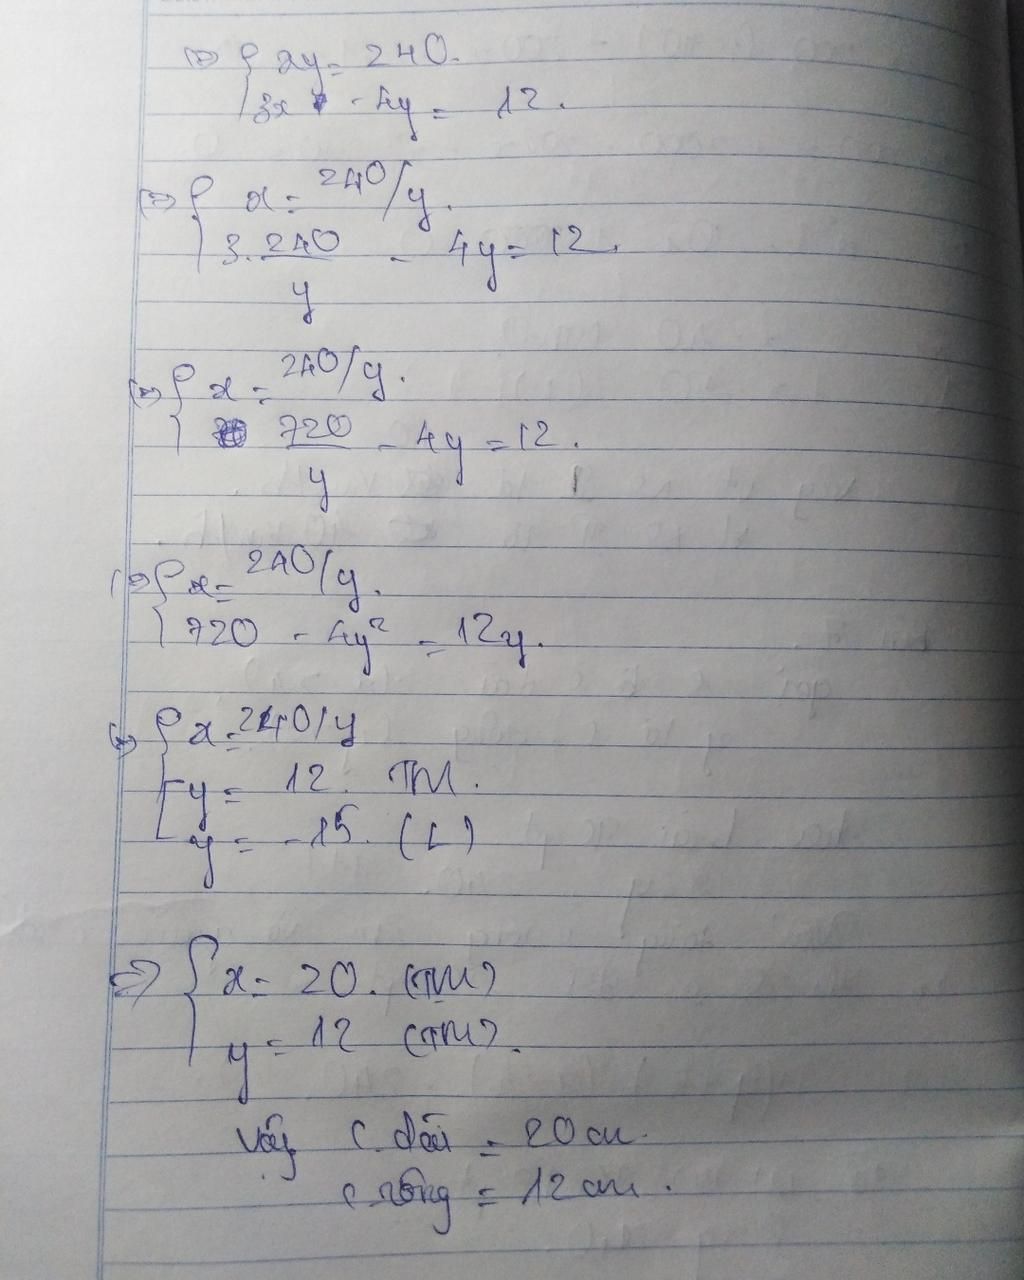 <=> { xy = 240.
{ 3x - 4y = 12.
<=> { x = 240/y.
{ 3. 240/y - 4y = 12.
<=> { x = 240/y.
{ 720/y - 4y = 12.
<=> { x = 240/y.
{ 720 - 4y² = 12y.
<=> { x = 240/y
[ y = 12. TM.
[ y = -15. (L)
=> { x = 20. (TM)
{ y = 12 (TM).
Vậy c. dài = 20 cm.
c. rộng = 12 cm.